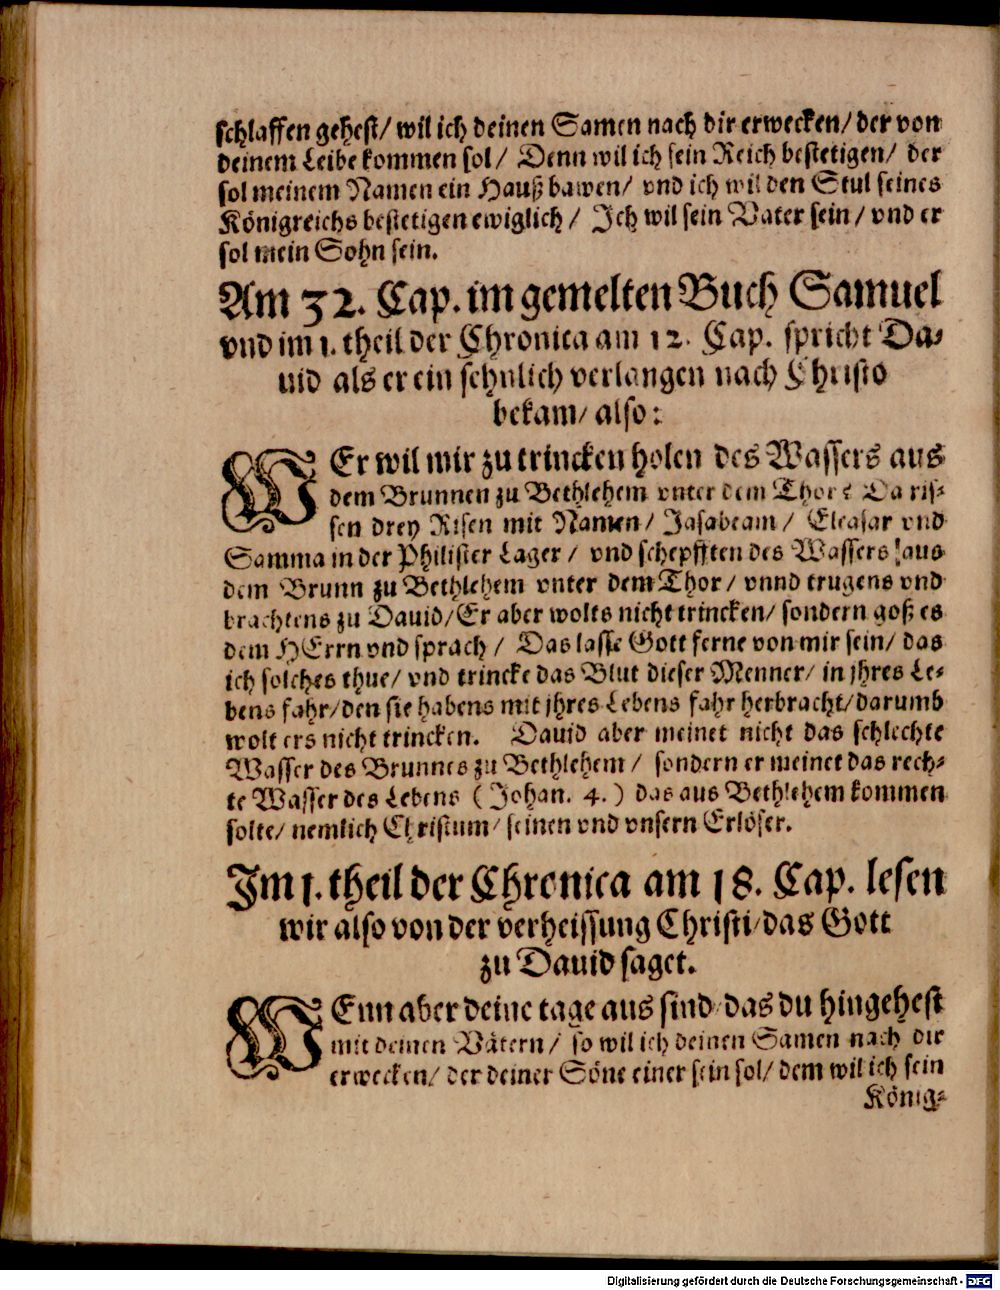 schlaffen gehest/ wil ich deinen Samen nach dir erwecken/ der von
deinem Leibe kommen sol/ Denn wil ich sein Reich bestetigen/ der
sol meinem Namen ein Hauß bawen/ vnd ich wil den Stul seines
Königreichs bestetigen ewiglich/ Ich wil sein Vater sein/ vnd er
sol mein Sohn sein.
Am 32. Cap. im gemelten Buch Samuel
vnd im 1. theil der Chronica am 12. Cap. spricht Da-
uid als er ein sehnlich verlangen nach Christo
bekam/ also:
WEr wil mir zu trincken holen des Wassers aus
dem Brunnen zu Bethlehem vnter dem Thore? Da ris-
sen drey Risen mit Namen/ Jasabeam/ Eleasar vnd
Samma in der Philister Lager/ vnd schepfften des Wassers aus
dem Brunn zu Bethlehem vnter dem Thor/ vnnd trugens vnd
brachtens zu Dauid/ Er aber wolts nicht trincken/ sondern goß es
dem HErrn vnd sprach/ Das lasse Gott ferne von mir sein/ das
ich solches thue/ vnd trincke das Blut dieser Menner/ in jhres Le-
bens fahr/ den sie habens mit jhres Lebens fahr herbracht/ darumb
wolt ers nicht trincken. Dauid aber meinet nicht das schlechte
Wasser des Brunnes zu Bethlehem/ sondern er meinet das rech-
te Wasser des Lebens (Johan. 4.) das aus Bethlehem kommen
solte/ nemlich Christum/ seinen vnd vnsern Erlöser.
Im 1. theil der Chronica am 18. Cap. lesen
wir also von der verheissung Christi/ das Gott
zu Dauid saget.
WEnn aber deine tage aus sind/ das du hingehest
mit deinen Vätern/ so wil ich deinen Samen nach dir
erwecken/ der deiner Söne einer sein sol/ dem wil ich sein
König-
Digitalisierung gefördert durch die Deutsche Forschungsgemeinschaft - DFG